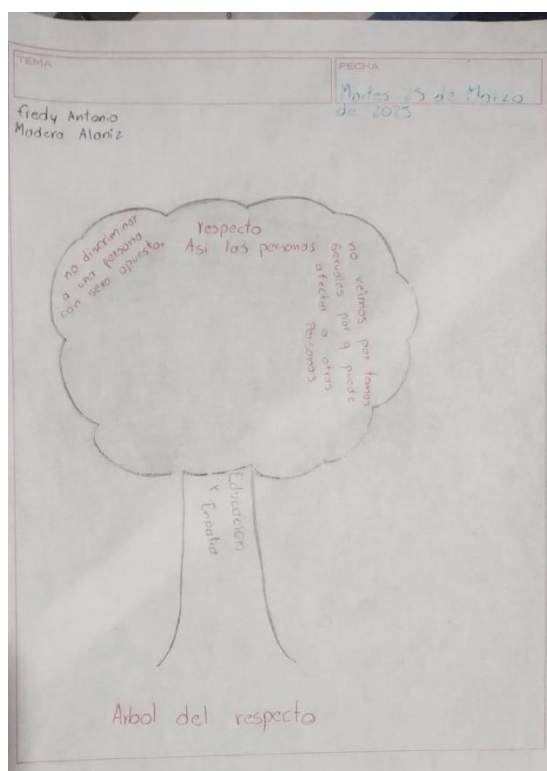 TEMA
FECHA
Martes 25 de Marzo
de 2025
fredy Antonio
Madera Alaniz
no discriminar
a una persona
con sexo opuesto.
respecto
Asi las personas
no veirnos por temas
sexuales por q puede
afectar a otras
Personas
Educacion
Y Enpatia
Arbol del respecto